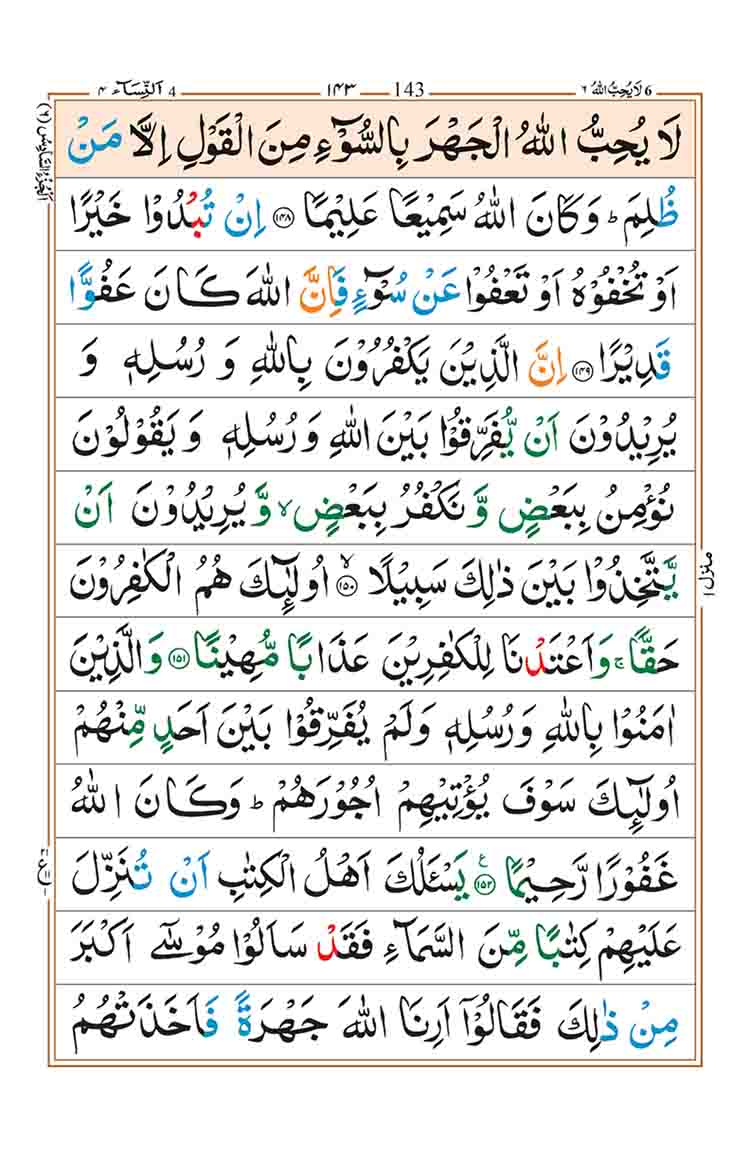 4 اَلنِّسَآء ۴ ١٤٣ 143 6 لَا يُحِبُّ اللهُ ٦
اَلْجُزْءُ السَّادِسُ (٦)
لَا يُحِبُّ اللّٰهُ الْجَهْرَ بِالسُّوْٓءِ مِنَ الْقَوْلِ اِلَّا مَنْ
ظُلِمَ ؕ وَكَانَ اللّٰهُ سَمِيْعًا عَلِيْمًا ﴿١٤٨﴾ اِنْ تُبْدُوْا خَيْرًا
اَوْ تُخْفُوْهُ اَوْ تَعْفُوْا عَنْ سُوْٓءٍ فَاِنَّ اللّٰهَ كَانَ عَفُوًّا
قَدِيْرًا ﴿١٤٩﴾ اِنَّ الَّذِيْنَ يَكْفُرُوْنَ بِاللّٰهِ وَ رُسُلِهٖ وَ
يُرِيْدُوْنَ اَنْ يُّفَرِّقُوْا بَيْنَ اللّٰهِ وَ رُسُلِهٖ وَ يَقُوْلُوْنَ
نُؤْمِنُ بِبَعْضٍ وَّ نَكْفُرُ بِبَعْضٍ ۙ وَّ يُرِيْدُوْنَ اَنْ
يَّتَّخِذُوْا بَيْنَ ذٰلِكَ سَبِيْلًا ۙ﴿١٥٠﴾ اُولٰٓئِكَ هُمُ الْكٰفِرُوْنَ
منزل ١
حَقًّا ۚ وَاَعْتَدْنَا لِلْكٰفِرِيْنَ عَذَابًا مُّهِيْنًا ﴿١٥١﴾ وَالَّذِيْنَ
اٰمَنُوْا بِاللّٰهِ وَرُسُلِهٖ وَلَمْ يُفَرِّقُوْا بَيْنَ اَحَدٍ مِّنْهُمْ
اُولٰٓئِكَ سَوْفَ يُؤْتِيْهِمْ اُجُوْرَهُمْ ؕ وَكَانَ اللّٰهُ
غَفُوْرًا رَّحِيْمًا ﴿١٥٢﴾ ع يَسْـَٔلُكَ اَهْلُ الْكِتٰبِ اَنْ تُنَزِّلَ
عَلَيْهِمْ كِتٰبًا مِّنَ السَّمَآءِ فَقَدْ سَاَلُوْا مُوْسٰٓى اَكْبَرَ
مِنْ ذٰلِكَ فَقَالُوْٓا اَرِنَا اللّٰهَ جَهْرَةً فَاَخَذَتْهُمُ